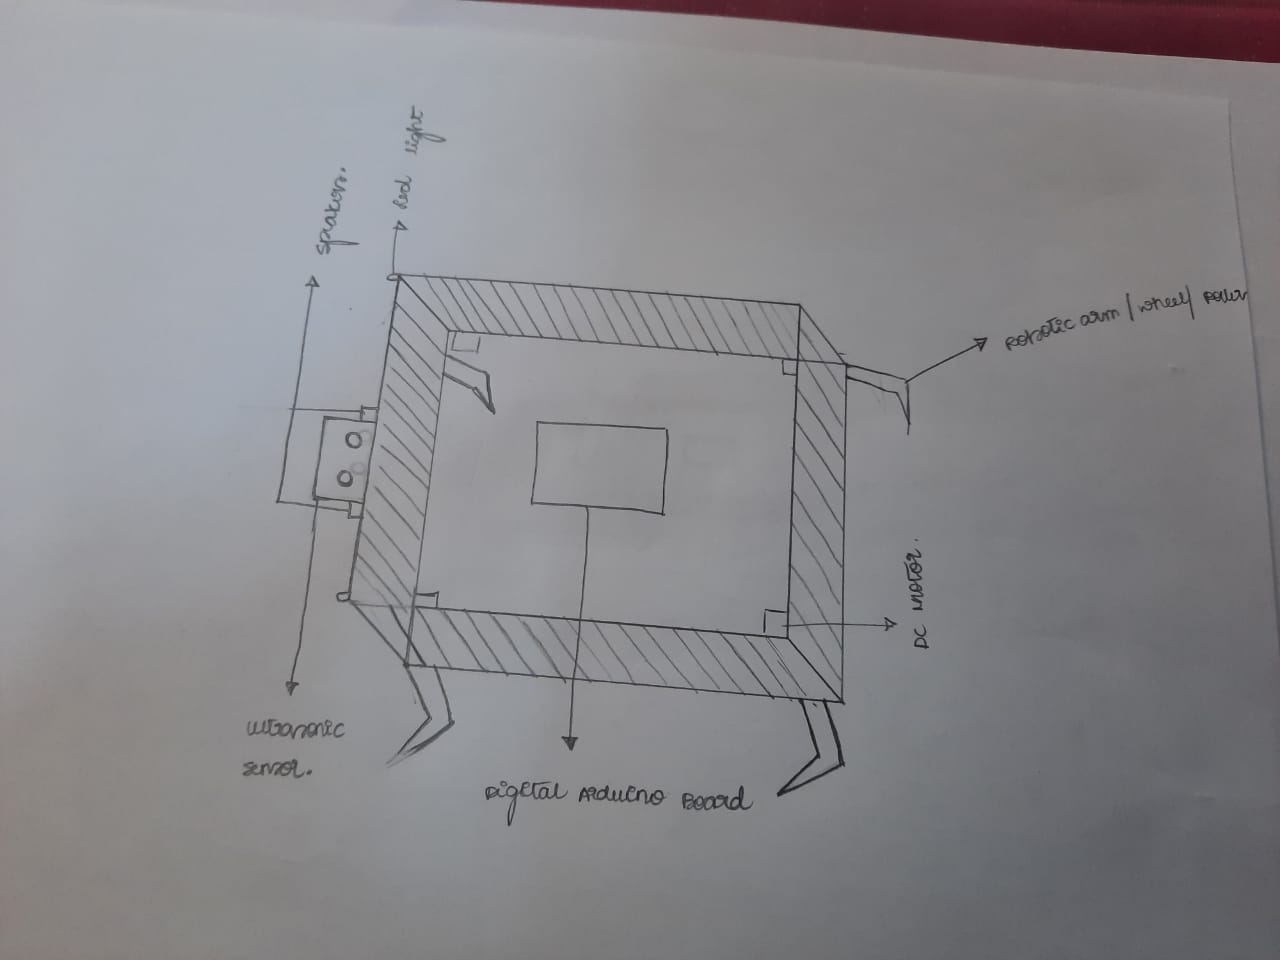 speakers.
Red light
Robotic arm / wheel /
DC Motor.
ultrasonic
sensor.
Digital Arduino Board